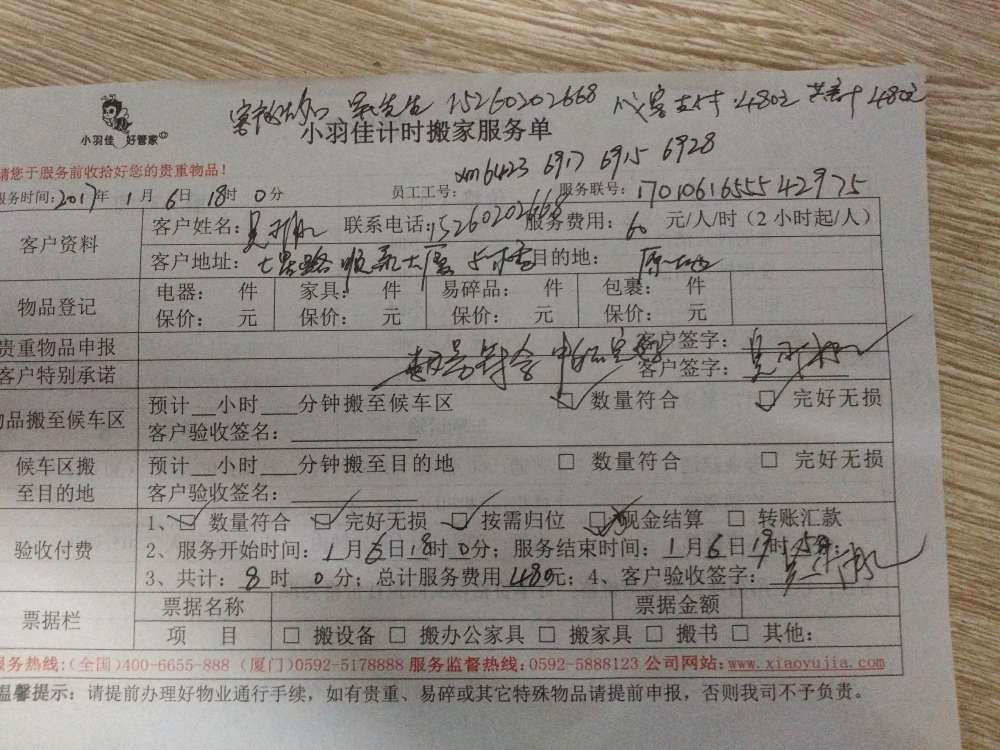 吴先生 15260202668 代客支付:480元 共计480元
小羽佳 好管家
小羽佳计时搬家服务单
请您于服务前收拾好您的贵重物品!
xm6423 6917 6915 6928
服务时间:2017年1月6日18时0分 员工工号: 服务联号:1701061655542975
客户资料 客户姓名: 联系电话:15260202668 服务费用:60元/人/时(2小时起/人)
客户地址: 目的地:
物品登记 电器: 件 家具: 件 易碎品: 件 包裹: 件
保价: 元 保价: 元 保价: 元 保价: 元
贵重物品申报 客户签字:
客户特别承诺 客户签字:
物品搬至候车区 预计__小时___分钟搬至候车区 ☑ 数量符合 ☑ 完好无损
客户验收签名:
候车区搬至目的地 预计__小时___分钟搬至目的地 □ 数量符合 □ 完好无损
客户验收签名:
验收付费 1、☑ 数量符合 ☑ 完好无损 ☑ 按需归位 现金结算 □ 转账汇款
2、服务开始时间:1月6日18时0分;服务结束时间:1月6日19时
3、共计:8时0分;总计服务费用480元;4、客户验收签字:
票据栏 票据名称 票据金额
项 目 □ 搬设备 □ 搬办公家具 □ 搬家具 □ 搬书 □ 其他:
服务热线:(全国)400-6655-888 (厦门)0592-5178888 服务监督热线:0592-5888123 公司网站:www.xiaoyujia.com
温馨提示:请提前办理好物业通行手续,如有贵重、易碎或其它特殊物品请提前申报,否则我司不予负责。